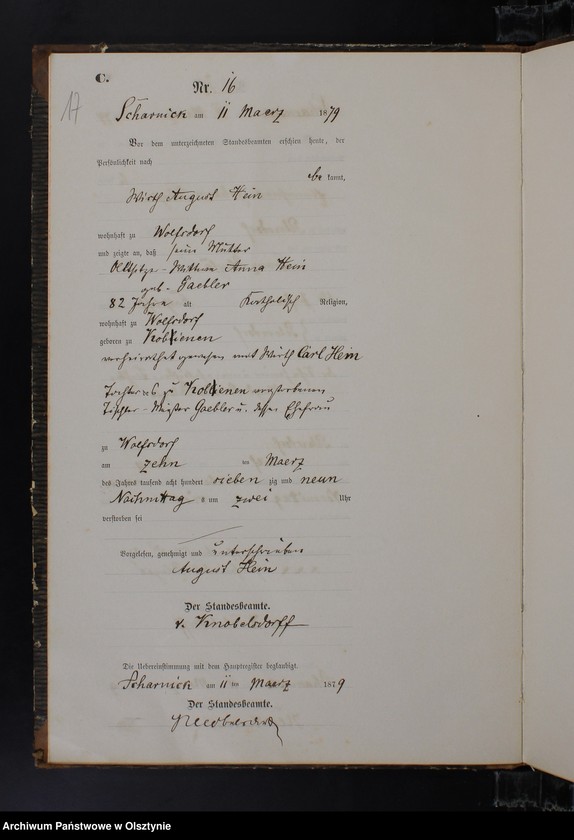 C.
17
Nr. 16
Scharnick am 11 Maerz 1879
Vor dem unterzeichneten Standesbeamten erschien heute, der
Persönlichkeit nach
be kannt,
Wirth August Hein
wohnhaft zu Wolfsdorf
und zeigte an, daß seine Mutter
Wittwe Anna Hein
geb. Gaebler
82 Jahre alt Katholisch Religion,
wohnhaft zu Wolfsdorf
geboren zu
verheirathet gewesen mit Wirth Carl Hein
Tochter des zu verstorbenen
Tischler-Meister Gaebler u. dessen Ehefrau
zu Wolfsdorf
am zehn ten Maerz
des Jahres tausend acht hundert sieben zig und neun
Nachmittag s um zwei Uhr
verstorben sei
Vorgelesen, genehmigt und unterschrieben
August Hein
Der Standesbeamte.
v. Knobelsdorff
Die Uebereinstimmung mit dem Hauptregister beglaubigt.
Scharnick am 11 ten Maerz 1879
Der Standesbeamte.
Archiwum Państwowe w Olsztynie